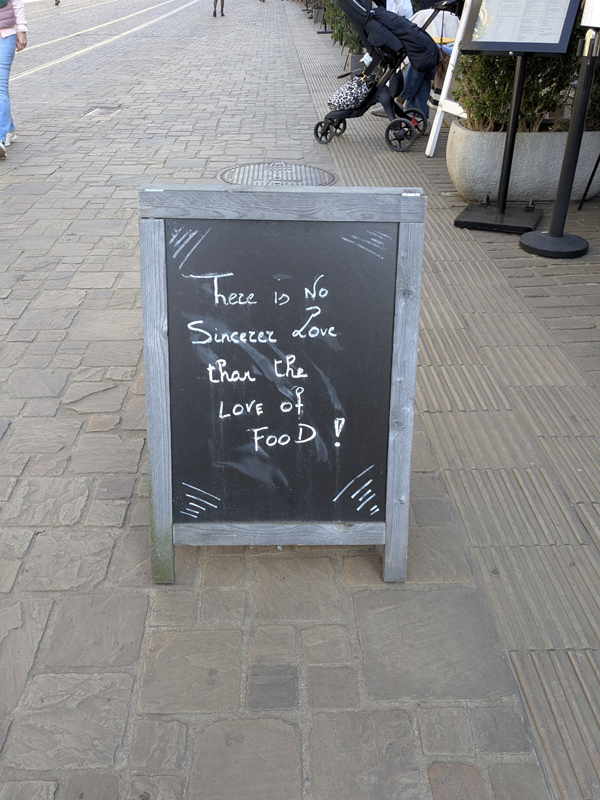 There is No
Sincerer Love
than the
LOVE of
FOOD !